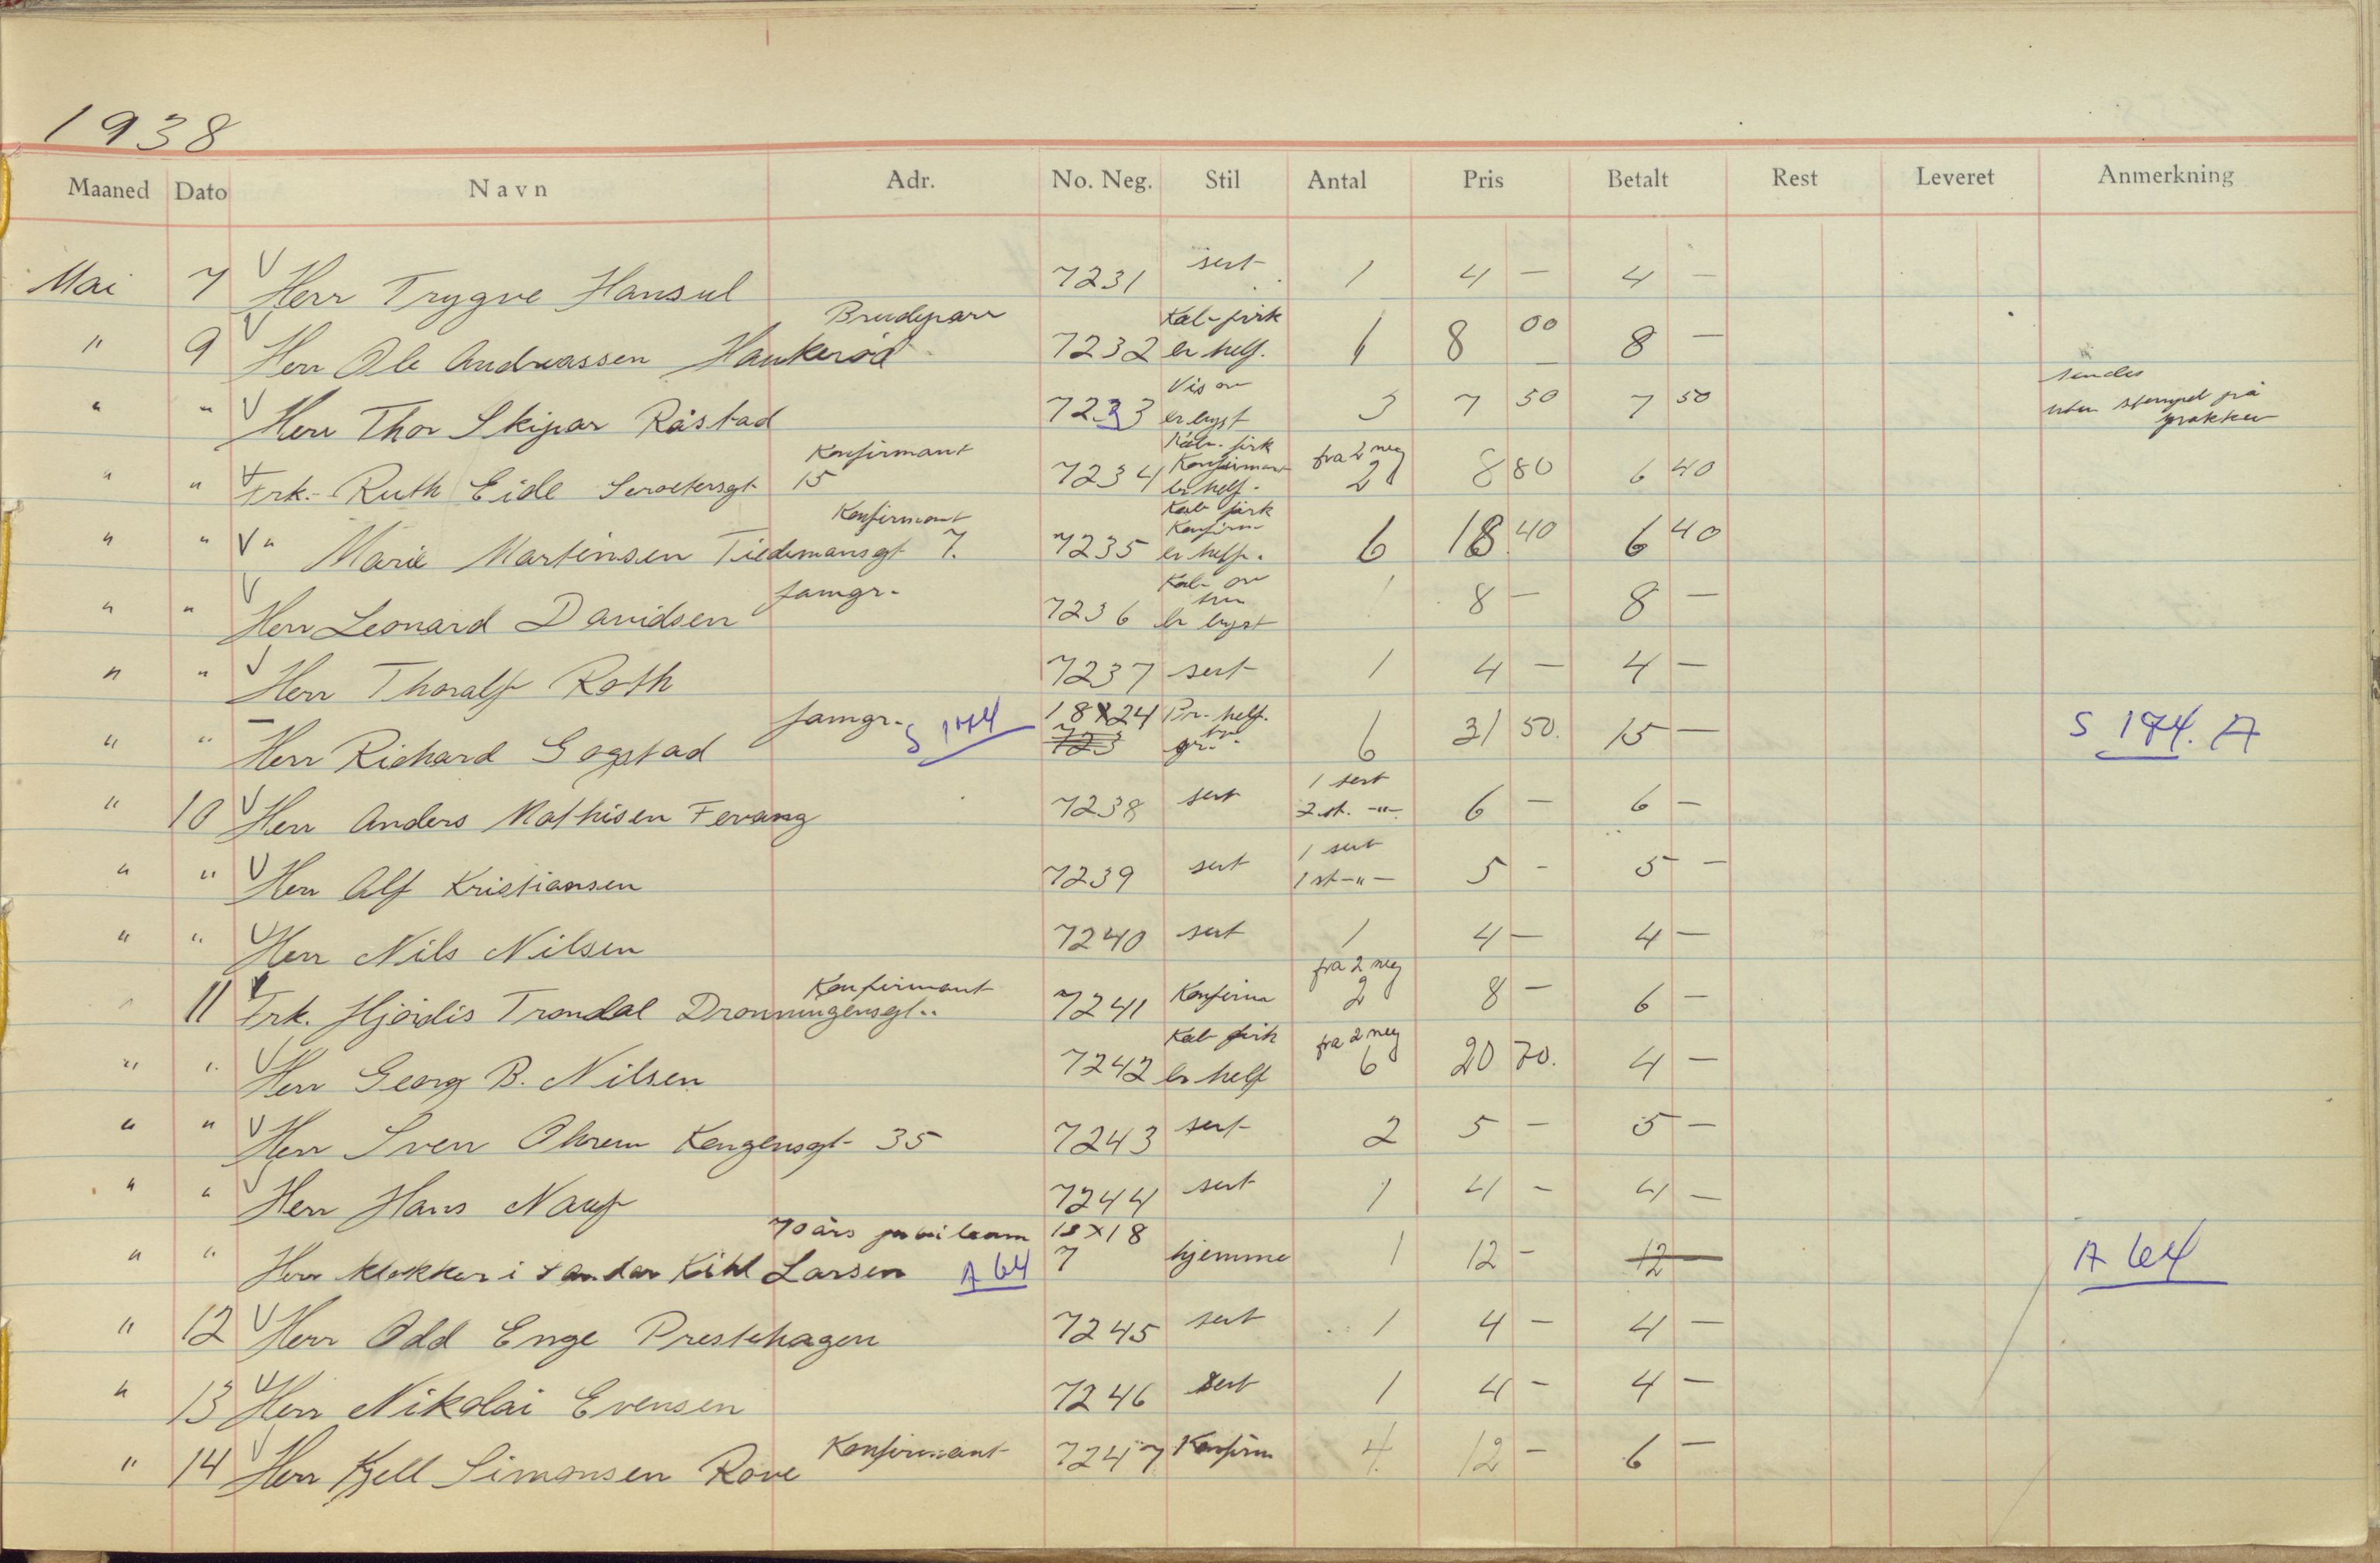 1938
Maaned Dato Navn Adr. No. Neg. Stil Antal Pris Betalt Rest Leveret Anmerkning
Mai 7 V Herr Trygve Hansul 7231 sert 1 4 — 4 —
Brudepar Kab-firk
" 9 V Herr Ole Andreassen Haukerød 7232 er helf. 1 8 00 8 —
Vis ov sendes
" " V Herr Thor Skipar Råstad 7233 er bryst 3 7 50 7 50 uten stempel på
Konfirmant Kab. firk fra 2 neg
" " V Frk. Ruth Eide 15 7234 Konfirmant er helf. 2 8 80 6 40
Konfirmant Kab firk
Konfirm
" " V " Marie Martinsen Tiedemansgt 7. 7235 er helf. 6 18 40 6 40
famgr. Kab ov
" " V Herr Leonard Davidsen 7236 er bryst 1 8 — 8 —
" " V Herr Thoralf Roth 7237 sert 1 4 — 4 —
famgr. S 174 18x24 Pr. helf.
" " — Herr Richard Gogstad 723 gr. 6 31 50. 15 — S 174. A
1 sert
" 10 V Herr Anders Mathisen Fevang 7238 sert 2 st. -"- 6 — 6 —
1 sert
" " V Herr Alf Kristiansen 7239 sert 1 st -"- 5 - 5 —
" " V Herr Nils Nilsen 7240 sert 1 4 — 4 —
Konfirmant fra 2 neg
" 11 V Frk. Hjørdis Trondal Dronningensgt.. 7241 Konfirm 2 8 — 6 —
Kab firk fra 2 neg
" " V Herr Georg B. Nilsen 7242 er helf 6 20 70. 4 —
" " V Herr Sven Ohrem Kongensgt 35 7243 sert 2 5 — 5 —
" " V Herr Hans Nauf 7244 sert 1 4 - 4 —
70 års jubileum 13x18
" " Herr klokker i Sandar Kihl Larsen A 64 7 hjemme 1 12 - 12 — A 64
" 12 V Herr Odd Enge Prestehagen 7245 sert 1 4 - 4 —
" 13 V Herr Nikolai Evensen 7246 sert 1 4 - 4 —
Konfirmant
" 14 V Herr Kjell Simonsen Rove 7247 Konfirm 4 12 - 6 —